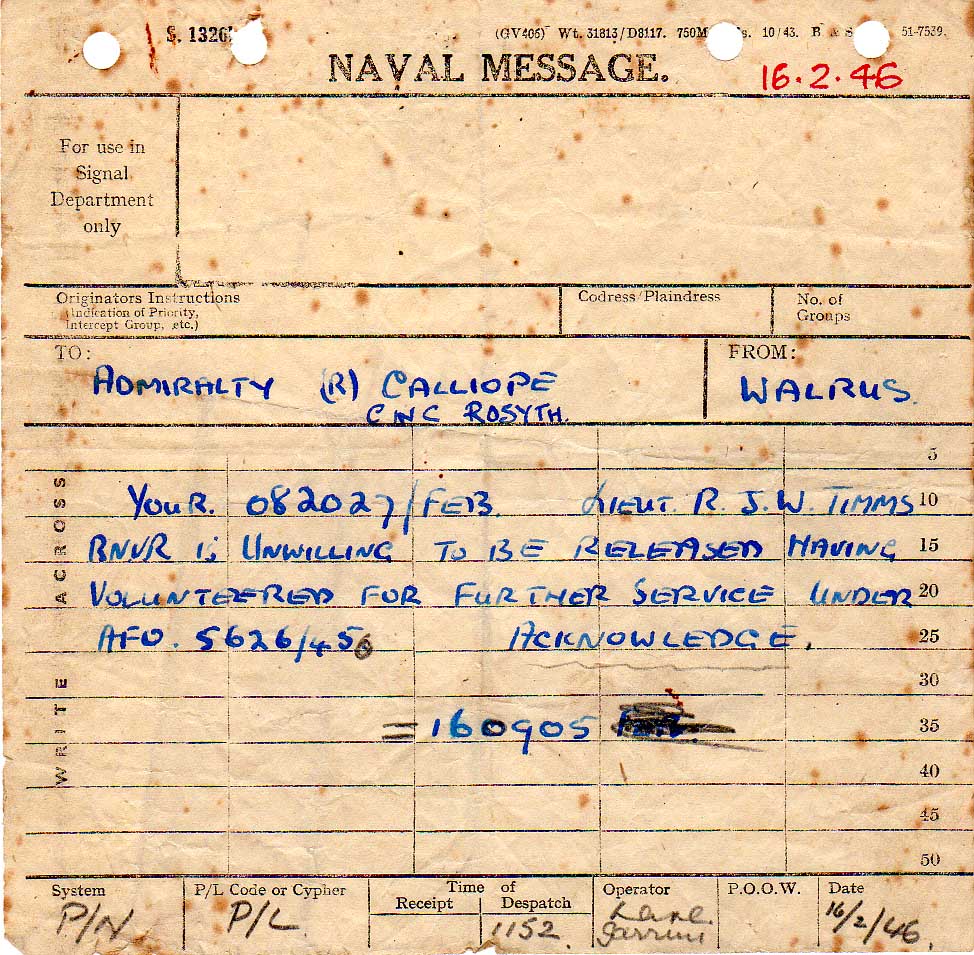 S. 1326
(GV406) Wt. 31813/D8117. 750M 10/43. B & S 51-7539.
NAVAL MESSAGE.
16.2.46
For use in
Signal
Department
only
Originators Instructions
(Indication of Priority,
Intercept Group, etc.)
Codress/Plaindress
No. of
Groups
TO:
FROM:
ADMIRALTY (R) CALLIOPE
CNC ROSYTH.
WALRUS.
WRITE ACROSS
5
YOUR. 082027/FEB. LIEUT. R. J. W. TIMMS 10
RNVR IS UNWILLING TO BE RELEASED HAVING 15
VOLUNTEERED FOR FURTHER SERVICE UNDER 20
AFO. 5626/45 ACKNOWLEDGE. 25
30
= 160905 35
40
45
50
System
P/L Code or Cypher
Time of
Receipt
Despatch
Operator
P.O.O.W.
Date
P/N
P/L
1152.
16/2/46.